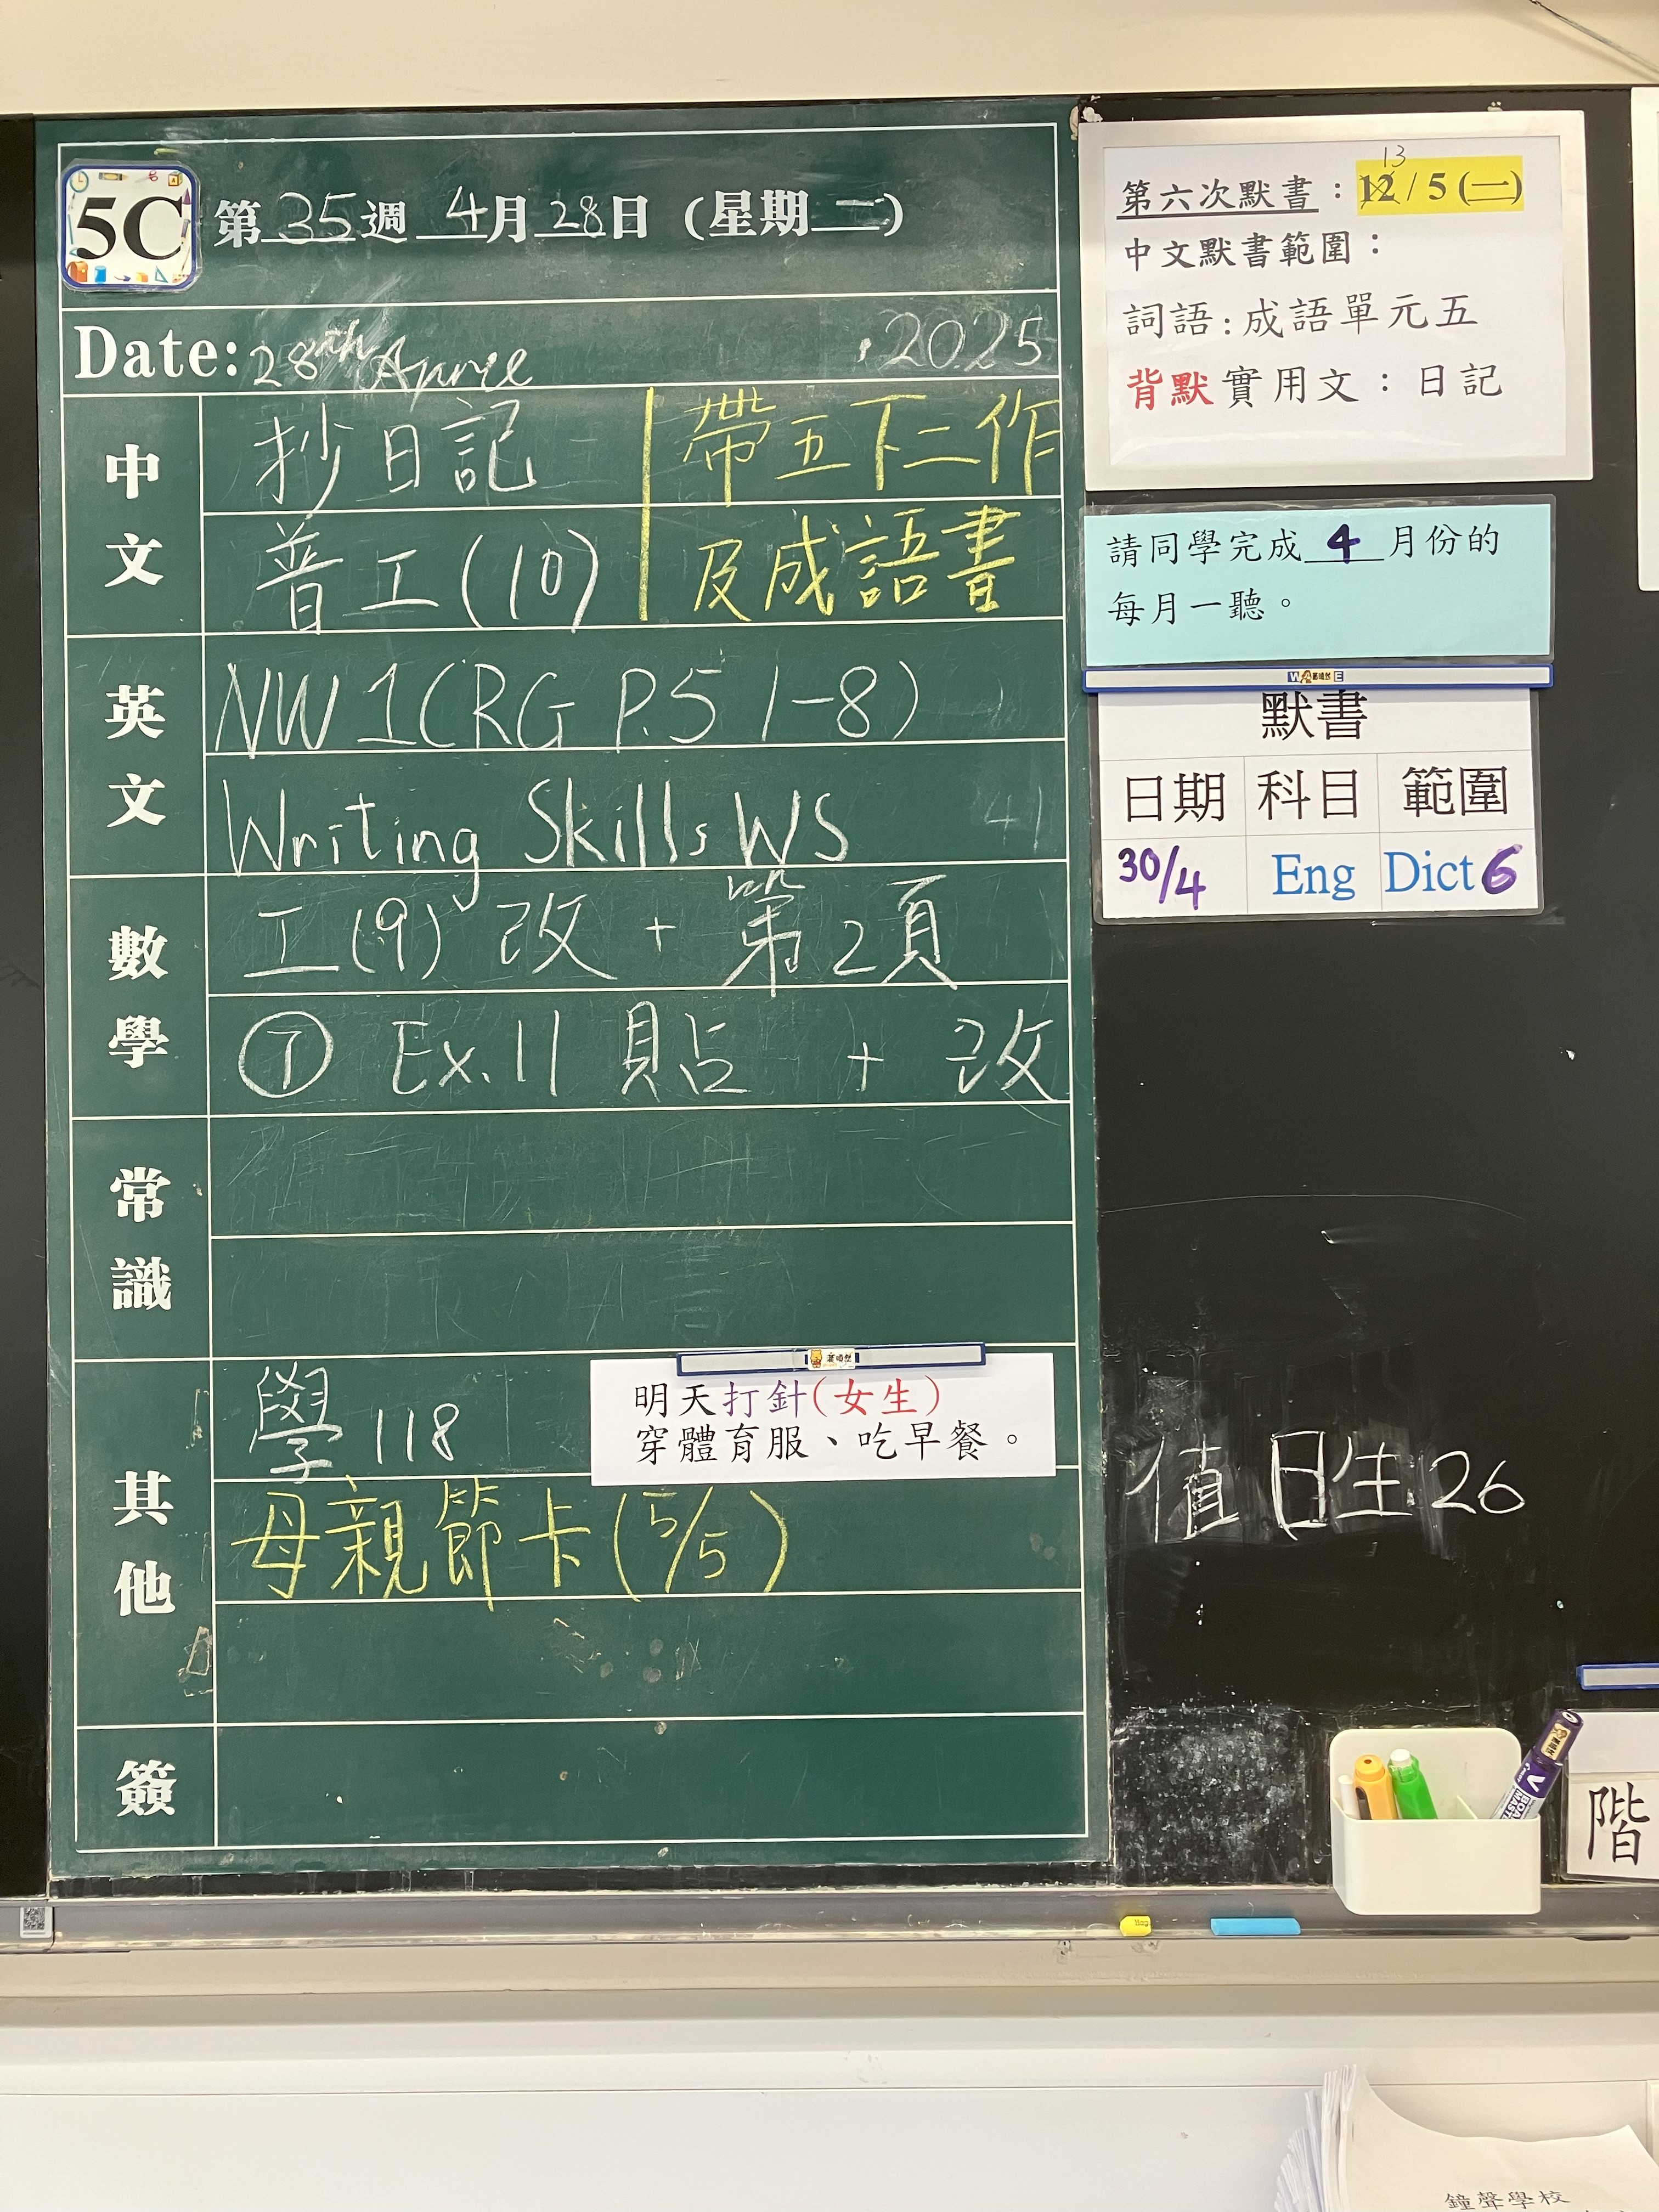 5C 第35週 4月28日 (星期一)
Date: 28th April .2025
中文
抄日記
帶五下二作
普工(10)
及成語書
英文
NW1(RG P.5 1-8)
Writing Skills WS
數學
工(9) 改 + 第2頁
⑦ Ex.11 貼 + 改
常識
其他
學118
明天打針(女生)
穿體育服、吃早餐。
母親節卡(5/5)
簽
第六次默書：13 12/5(一)
中文默書範圍：
詞語:成語單元五
背默實用文：日記
請同學完成4月份的
每月一聽。
默書
日期 科目 範圍
30/4 Eng Dict 6
值日生26
階
鐘聲學校